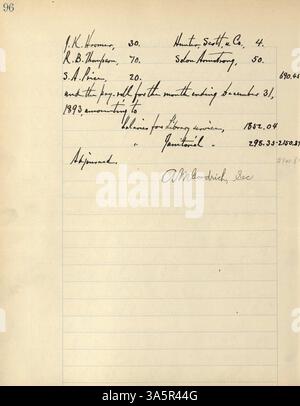 96
J. K. Hoomer, 30. Hunter, Scott, & Co. 4.
R. B. Thompson, 70. Solon Armstrong, 50.
S. A. 20. 690.45
and the pay-roll for the month ending December 31,
1893, amounting to
Salaries for Library service, 1852.04
" Janitorial " 298.33-2150.37
Adjourned.
Sec
alamy
Image ID: 3A5R44G
www.alamy.com